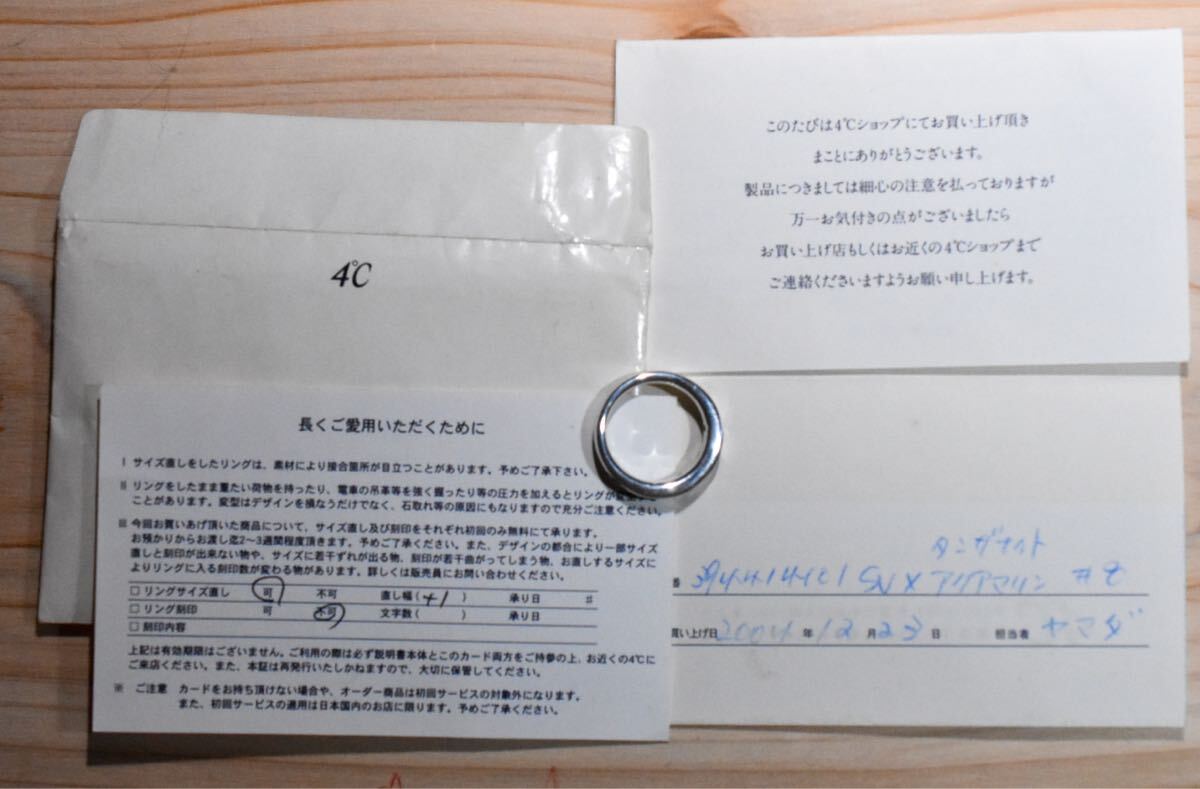 4℃
このたびは4℃ショップにてお買い上げ頂き
まことにありがとうございます。
製品につきましては細心の注意を払っておりますが
万一お気付きの点がございましたら
お買い上げ店もしくはお近くの4℃ショップまで
ご連絡くださいますようお願い申し上げます。
長くご愛用いただくために
Ⅰ サイズ直しをしたリングは、素材により接合箇所が目立つことがあります。予めご了承下さい。
Ⅱ リングをしたまま重たい荷物を持ったり、電車の吊革等を強く握ったり等の圧力を加えるとリングが
ことがあります。変型はデザインを損なうだけでなく、石取れ等の原因にもなりますので充分ご注意ください。
Ⅲ 今回お買いあげ頂いた商品について、サイズ直し及び刻印をそれぞれ初回のみ無料にて承ります。
お預かりからお渡し迄2〜3週間程度頂きます。予めご了承ください。また、デザインの都合により一部サイズ
直しと刻印が出来ない物や、サイズに若干ずれが出る物、刻印が若干曲がってしまう物、お直しするサイズに
よりリングに入る刻印数が変わる物があります。詳しくは販売員にお問い合わせください。
□ リングサイズ直し 可 不可 直し幅( +1 ) 承り日 #
□ リング刻印 可 不可 文字数( ) 承り日
□ 刻印内容
上記は有効期限はございません。ご利用の際は必ず説明書本体とこのカード両方をご持参の上、お近くの4℃に
ご来店ください。また、本証は再発行いたしかねますので、大切に保管してください。
※ ご注意 カードをお持ち頂けない場合や、オーダー商品は初回サービスの対象外になります。
また、初回サービスの適用は日本国内のお店に限ります。予めご了承ください。
タンザナイト
番 SV× アクアマリン
買い上げ日 2004 年 12 月 23 日 担当者 ヤマダ